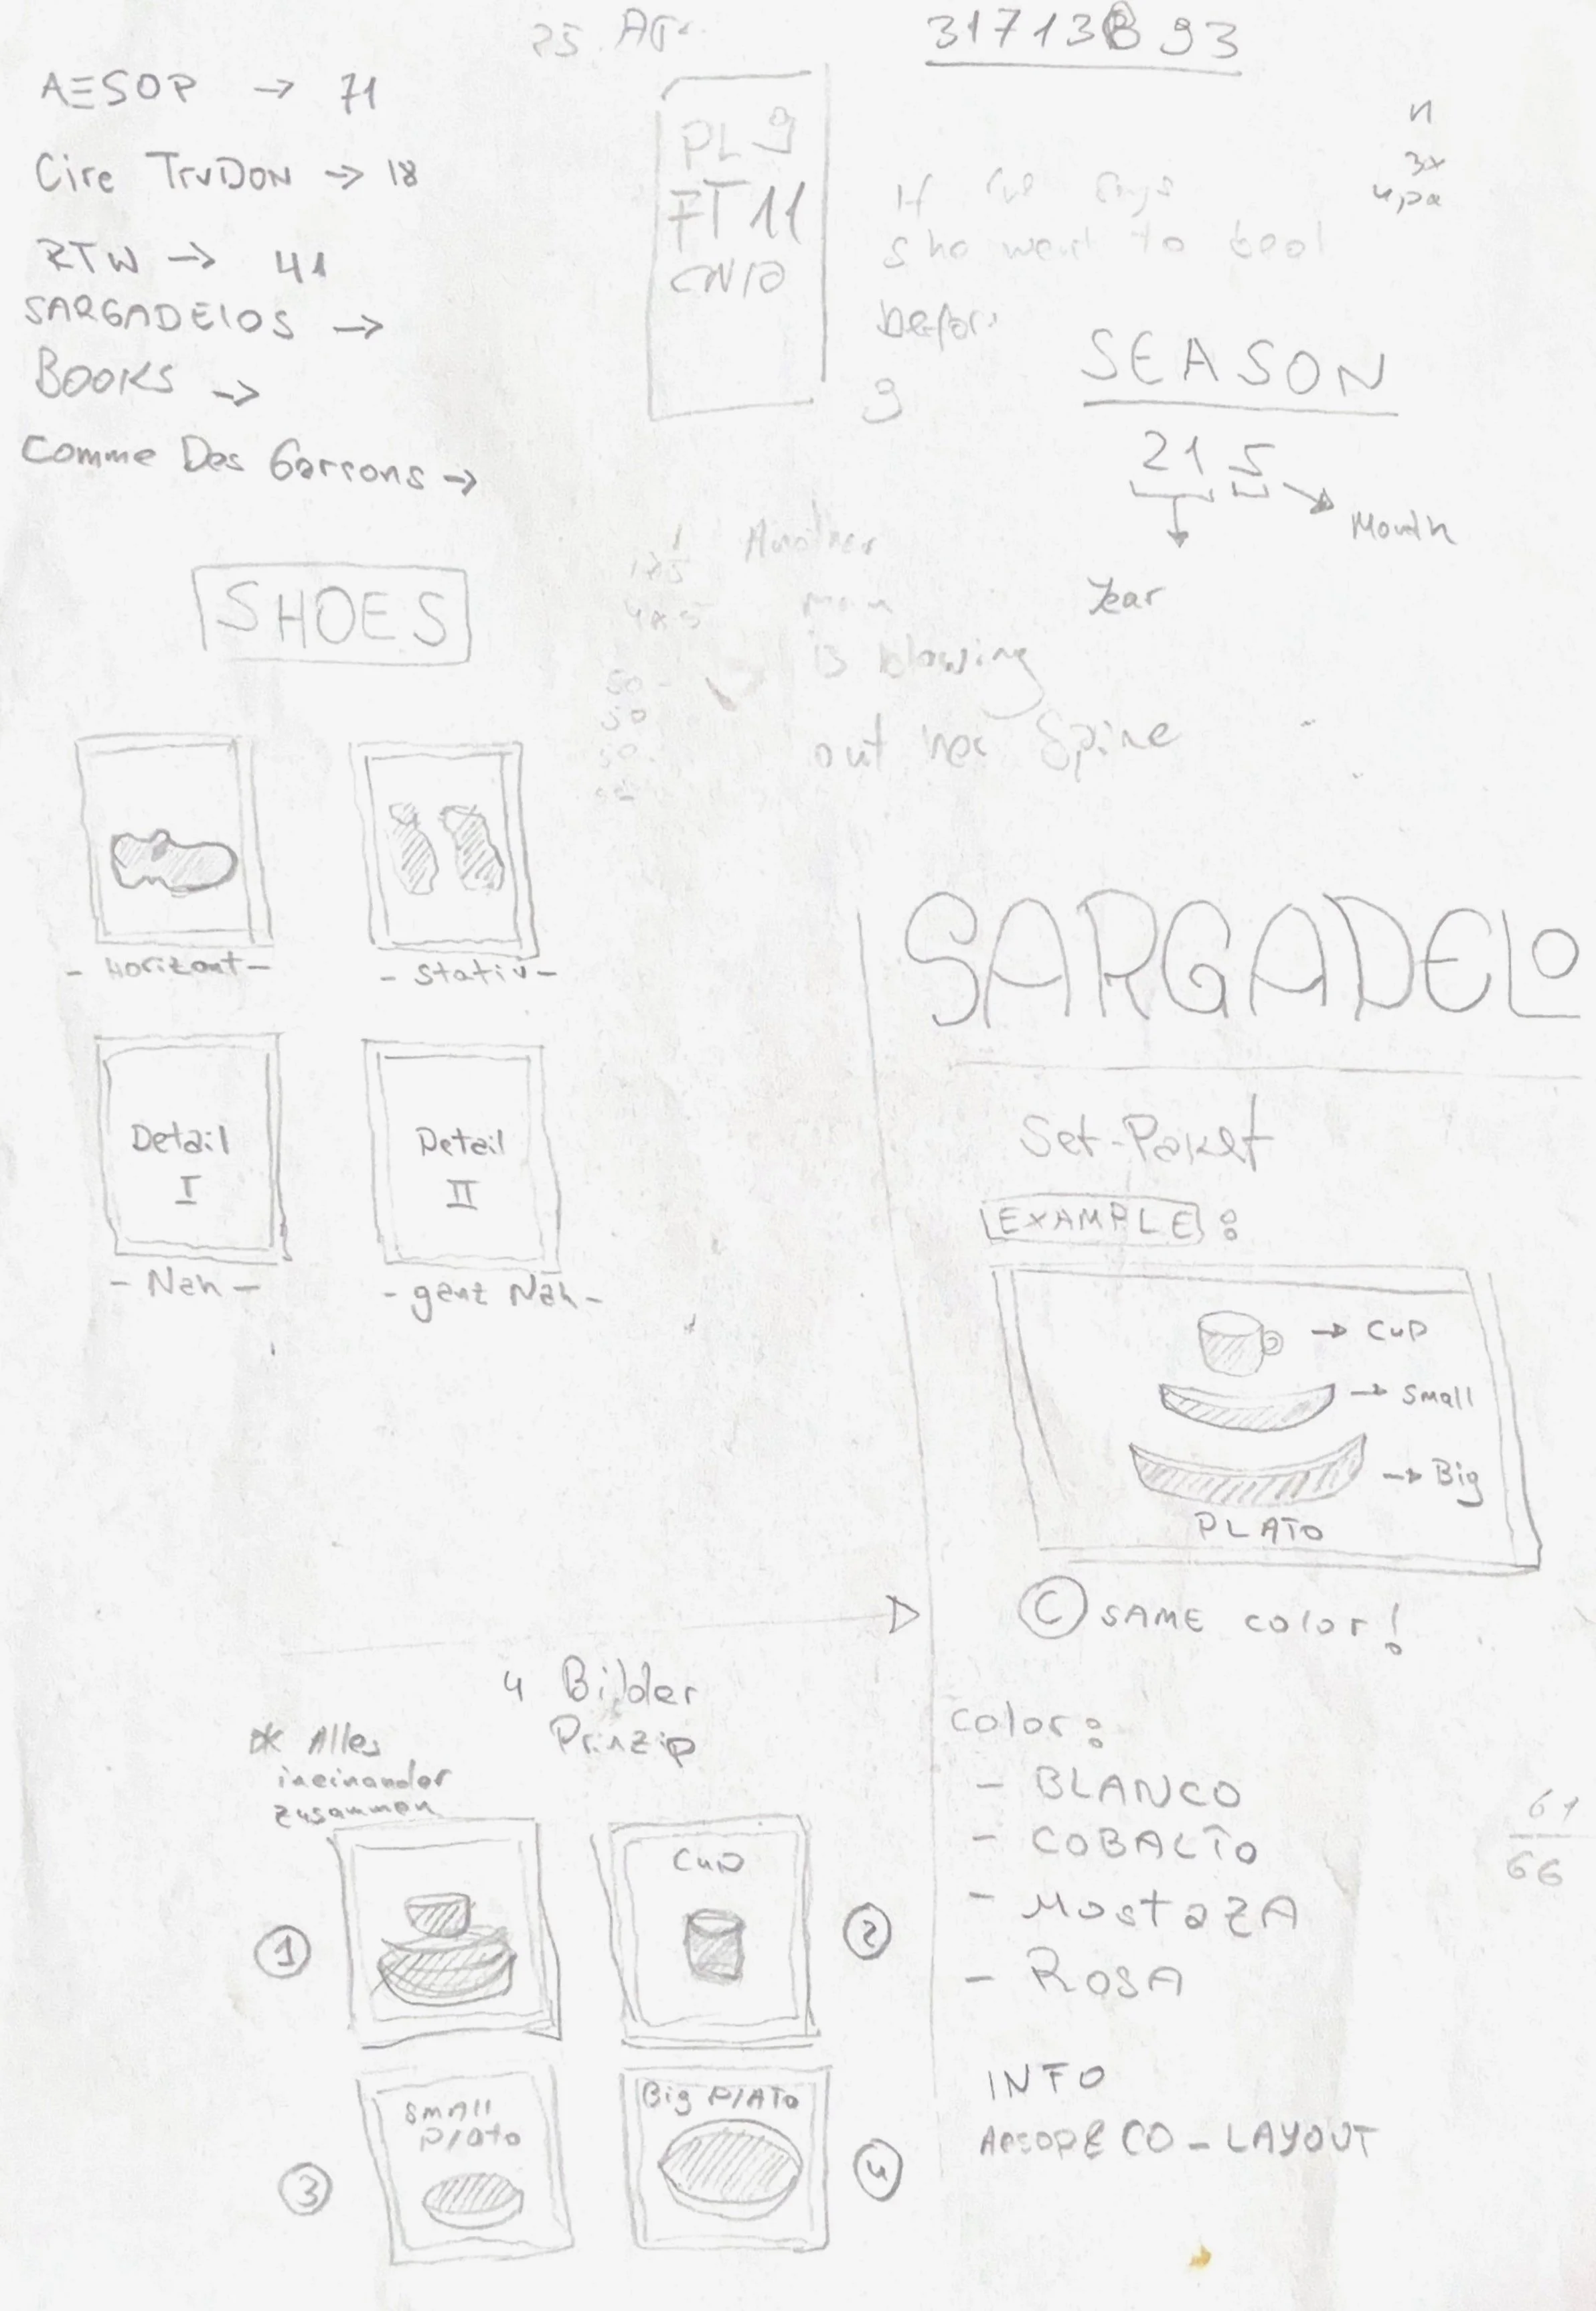 AESOP → 71
Cire TruDon → 18
RTW → 41
SARGADElOS →
BOOKS →
Comme Des Garsons →
PL 9
FT 11
CN10
If
she want to
before
9
SEASON
21 5
Month
Year
SHOES
Another
man
is blowing
out her Spine
50
50
50
- Horizont -
- Stativ -
Detail
I
Detail
II
- Nah -
- ganz Nah -
SARGADELO
Set-Paket
EXAMPLE:
→ CUP
→ Small
→ Big
PLATO
C SAME color!
4 Bilder
Prinzip
* Alles
ineinander
zusammen
1
CUP
2
SMAll
Plato
3
Big PlATO
4
color:
- BLANCO
- COBALTO
- MostazA
- ROSA
61
66
INFO
AesopE CO - LAYOUT